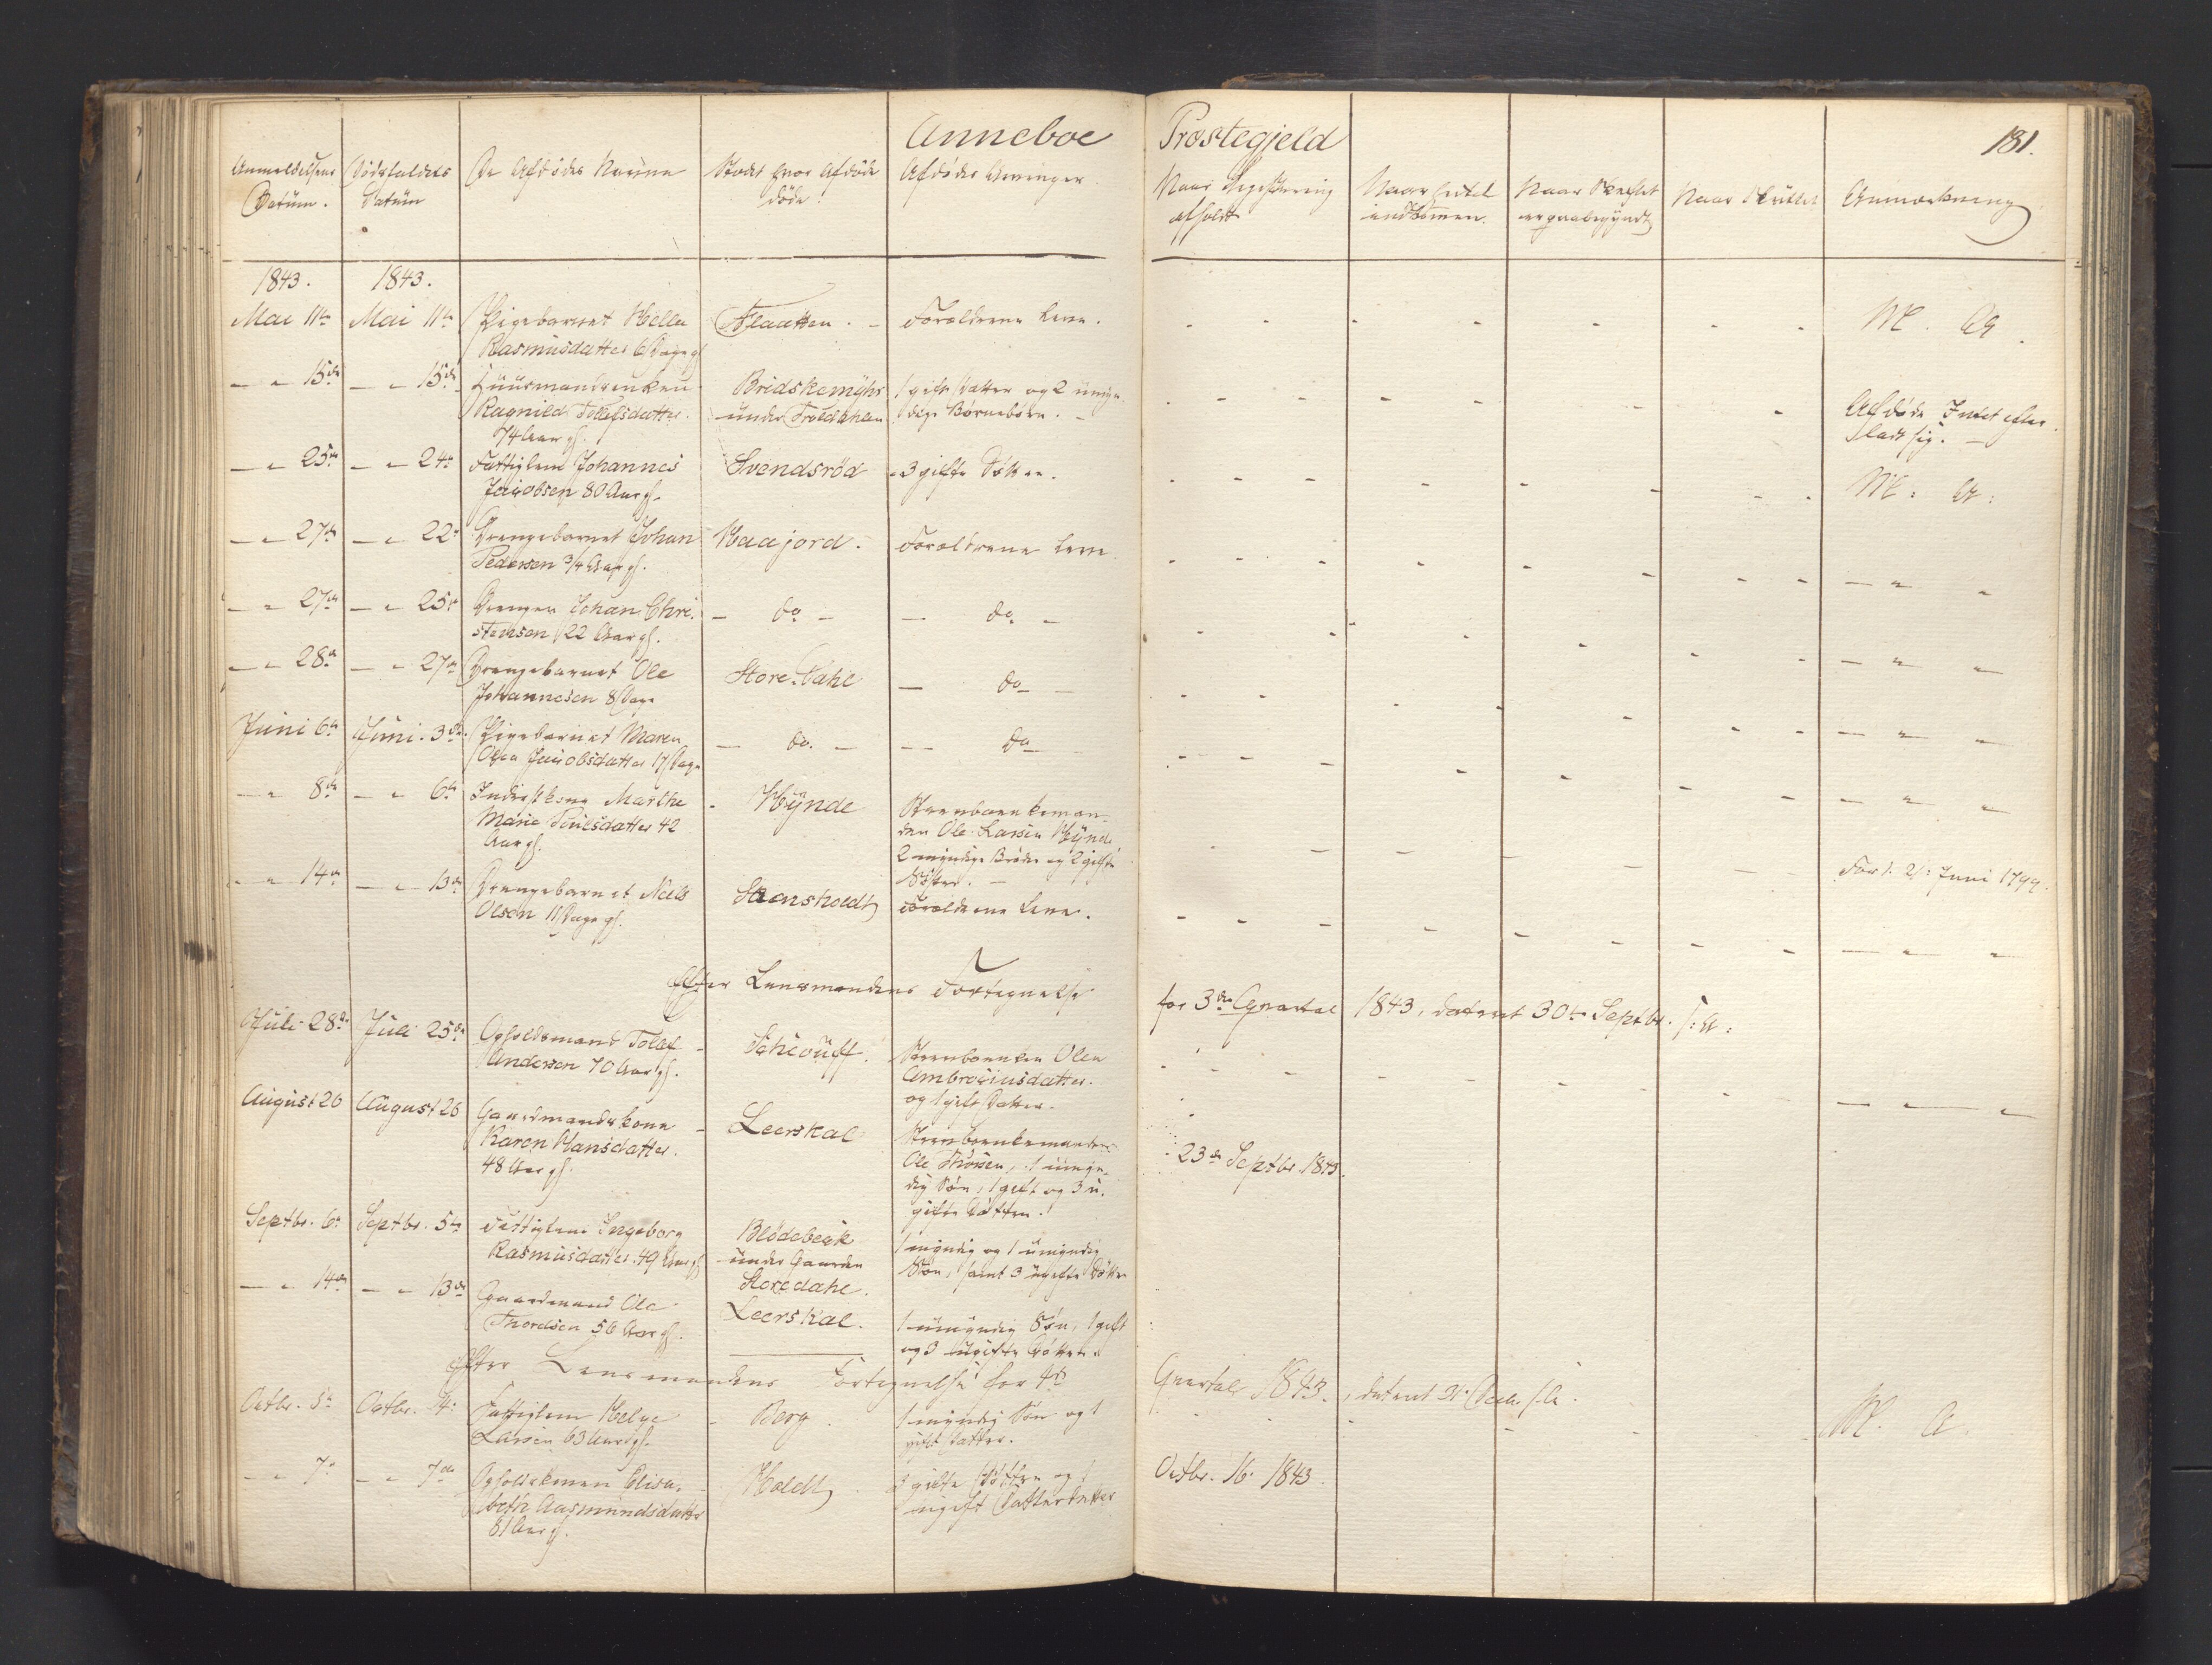 Anneboe Præstegjeld
181.
Anmeldelsens Datum.
Dødsfaldets Datum
De Afdødes Navne
Stedet hvor Afdøde døde.
Afdødes Arvinger.
Naar Registrering afholdt
Naar indkomen.
Naar Skiftet er paabegyndt
Naar sluttet
Anmærkning
1843. 1843.
Mai 11te Mai 11te Pigebarnet Helle Flaatten. Forældrene leve. M. A.
Rasmusdatter 6 Dage gl
— " 15de — " 15de Huusmandsenken Bredskemyhr 1 gift Datter og 2 umyn- Afdøde Intet efter
Ragnild Tollefsdatter. under Troldahlen dige Børnebørn. ladt sig.
74 Aar gl.
— " 25de — " 24de Fattiglem Johannes Svendsrød 3 gifte Døttre. M: A:
Jacobsen 80 Aar gl.
— " 27de — " 22de Drengebarnet Johan Haajord. Forældrene leve
Pedersen 3/4 Aar gl.
— " 27de — " 25de Drengen Johan Chri- — do — — do —
stensen 22 Aar gl.
— " 28de — " 27de Drengebarnet Ole Store Dahl — do —
Johannesen 8 Dage
Juni 6te Juni 3die Pigebarnet Maren — do. — — do
Olea Jacobsdatter 17 Dage
— " 8de — " 6te Inderstkone Marthe Hynde Steervboenkeman-
Marie 42 den Ole Larsen Hynde
Aar gl. 2 myndige Brødre og 2 gifte
Søstre. — For 1. 21: Juni 1799.
— " 14de — " 13de Drengebarnet Niels Steensholdt Forældrene leve.
Olsen 11 Dage gl.
Efter Lensmandens Fortegnelse for 3die Qvartal 1843, dateret 30te Septbr.
Juli 28de Juli 25de Opholdsmand Tollef Steervboenken Olea
Andersen 70 Aar gl. Ambrosiusdatter.
og 1 gift Datter.
August 26 August 26 Gaardmandskone Leerskal Steervboenkemanden
Karen Hansdatter. Ole Thorsen, 1 umyn- 23de Septbr. 1843.
48 Aar gl. dig Søn, 1 gift og 3 u-
gifte Døttre.
Septbr. 6te Septbr. 5te Fattiglem Ingeborg Blødebæk 1 myndig og 1 umyndig
Rasmusdatter 49 Aar gl under Gaarden Søn, samt 3 ugifte Døttre
Storedahl.
— " 14de — " 13de Gaardmand Ole Leerskal. 1 umyndig Søn, 1 gift
Thordsen 56 Aar gl. og 3 ugifte Døttre.
Efter Lensmandens Fortegnelse for 4de Qvartal 1843, dateret 31. Decbr.
Octbr. 5te Octbr. 4: Fattiglem Helge Berg 1 myndig Søn og 1 M. A.
Larsen 63 Aar gl. gift Datter.
— " 7de — " 7de Opholdskonen Elisa- Holdt gifte Døttre og 1 Octbr. 16. 1843.
beth Aasmundsdatter ugift Datterdatter
81 Aar gl.